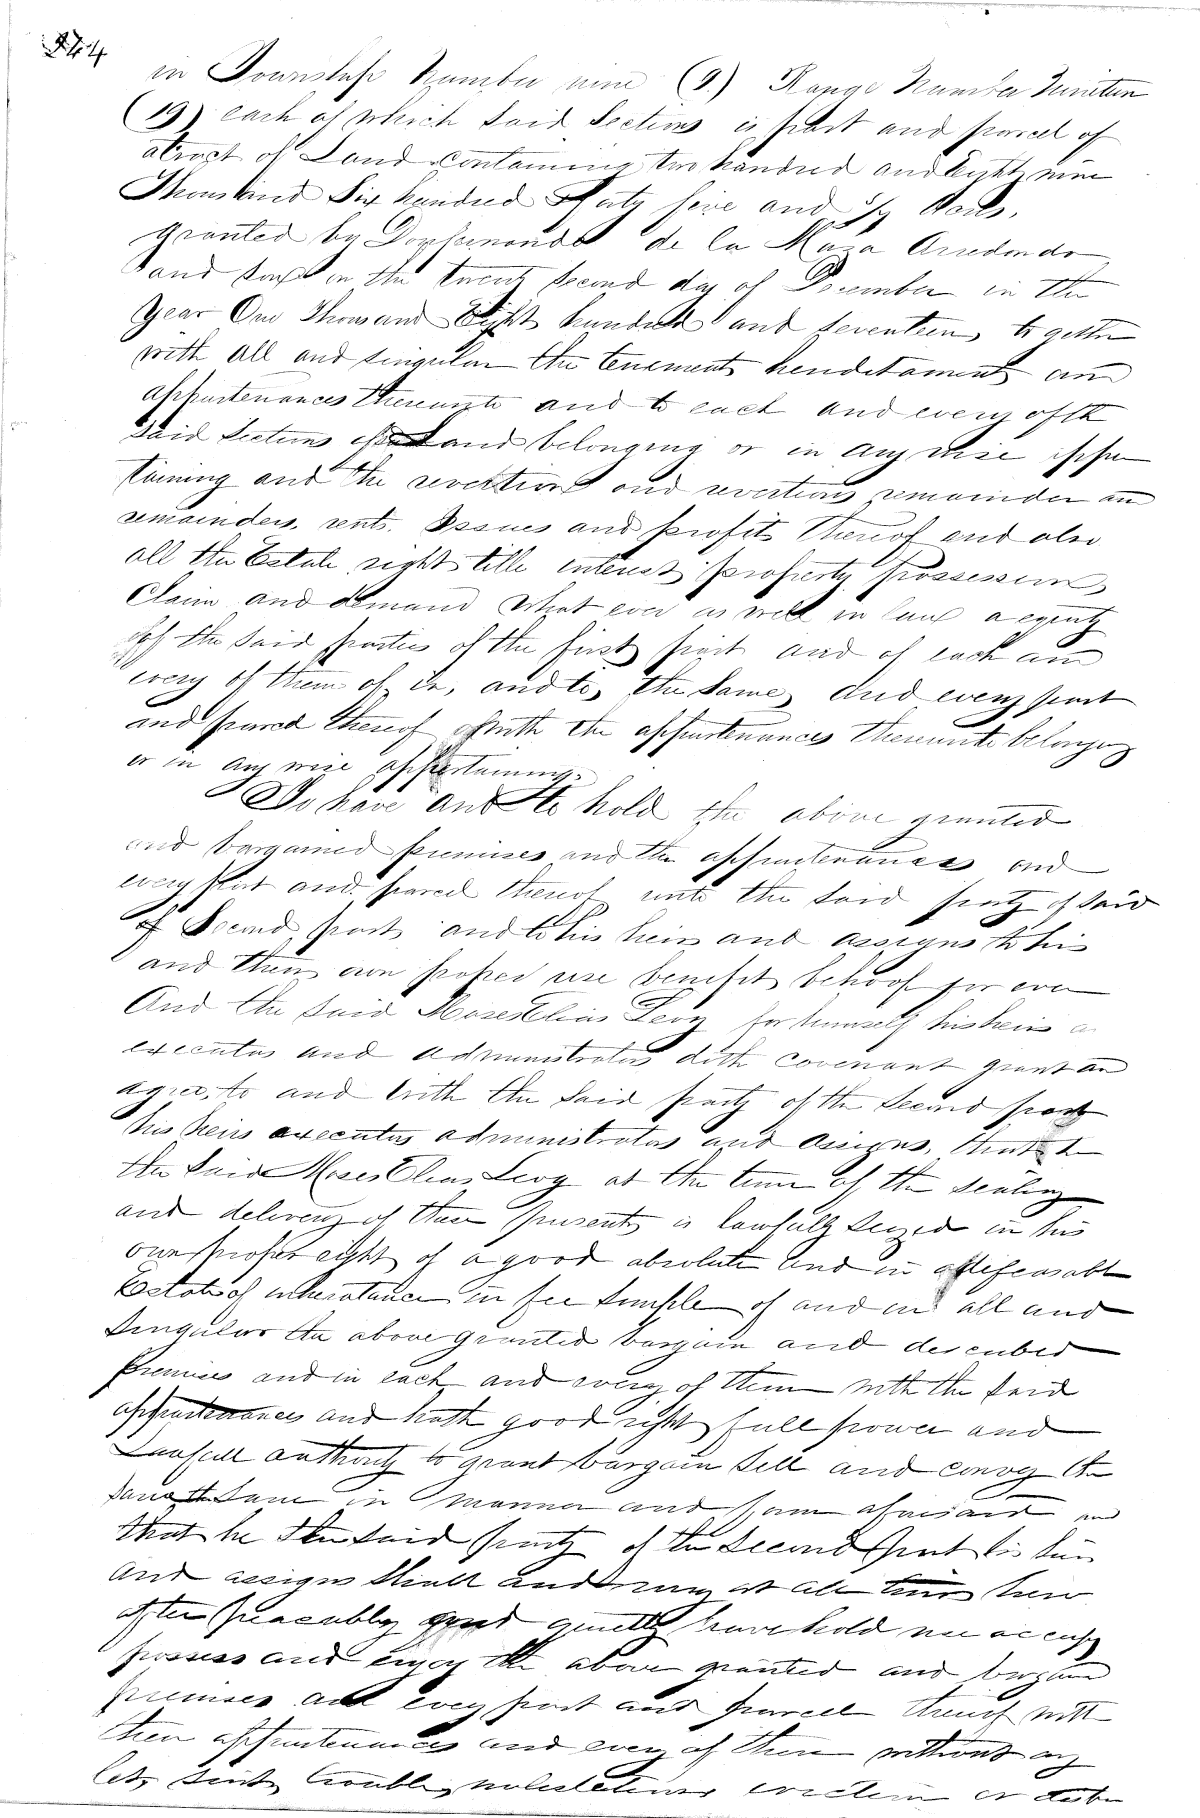 244
in Township Number nine (9.) Range Number Nineteen
(19) each of which said Sections is part and parcel of
atract of Land containing two hundred and Eighty nine
Thousand Six hundred forty five and 5/7 Acres,
granted by Don Fernando de la Maza Arredondo
and Son on the twenty second day of December in the
Year One Thousand Eight hundred and seventeen, together
with all and singular the tenements hereditaments and
appurtenances thereunto and to each and every of the
said Sections of Land belonging or in any wise apper
taining and the revertion and revertions remainder and
remainders, rents, Issues and profits thereof and also
all the Estate right title interest property possession
Claim and demand what ever as well in law a equity
off the said parties of the first part and of each and
every of them of, in, and to, the Same, and every part
and parcel thereof with the appurtenances thereunto belonging
or in any wise appertaining.
To have and to hold the above granted
and bargained premises and the appurtenances and
every part and parcel thereof unto the said party of said
of Second part, and to his heirs and assigns to his
and their own proper use benefit behoof for ever
And the said Moses Elias Levy for himself his heirs
executors and administrators doth covenant grant and
agree, to and with the said party of the second part
his heirs executors administrators and assigns, that he
the Said Moses Elias Levy at the time of the sealing
and delivery of these presents is lawfully seized in his
own proper right of a good absolute and in defeasable
Estate of inheratance in fee simple of and in all and
Singular the above granted bargain and described
premises and in each and every of them with the said
appurtenances and hath good right full power and
Lawfull authority to grant bargain sell and convey the
same in manner and form aforesaid and
that he the said party of the second part his heirs
and assigns shall and may at all times here
after peaceably and quietly have hold use occupy
possess and enjoy the above granted and bargain
premises and every part and parcell thereof with
their appurtenances and every of them without any
let, suit, trouble, molestation, eviction or distur